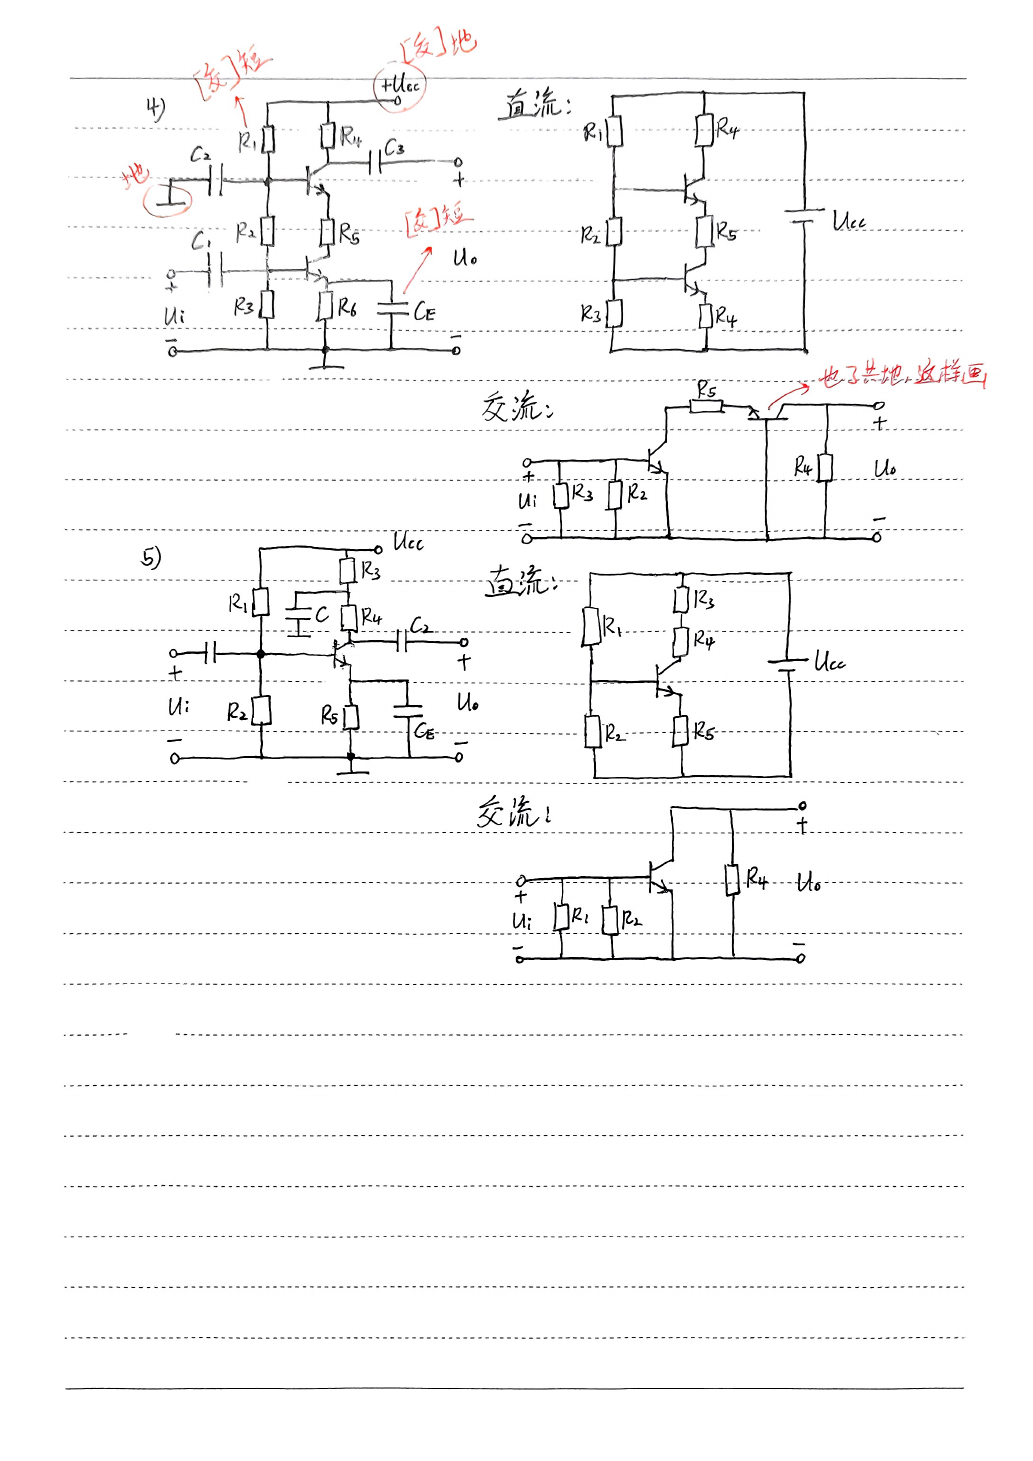 [交]短
[交]地
4)
+Ucc
R₁
R₄
C₃
C₂
地
+
R₂
R₅
[交]短
C₁
U₀
+
Ui
R₃
R₆
CE
−
−
直流:
R₁
R₄
R₂
R₅
Ucc
R₃
R₄
交流:
R₅
共地,这样画
+
+
R₄
U₀
Ui
R₃
R₂
−
−
5)
Ucc
R₃
R₁
C
R₄
C₂
+
+
Ui
R₂
R₅
CE
U₀
−
−
直流:
R₃
R₁
R₄
Ucc
R₂
R₅
交流:
+
+
R₄
U₀
Ui
R₁
R₂
−
−